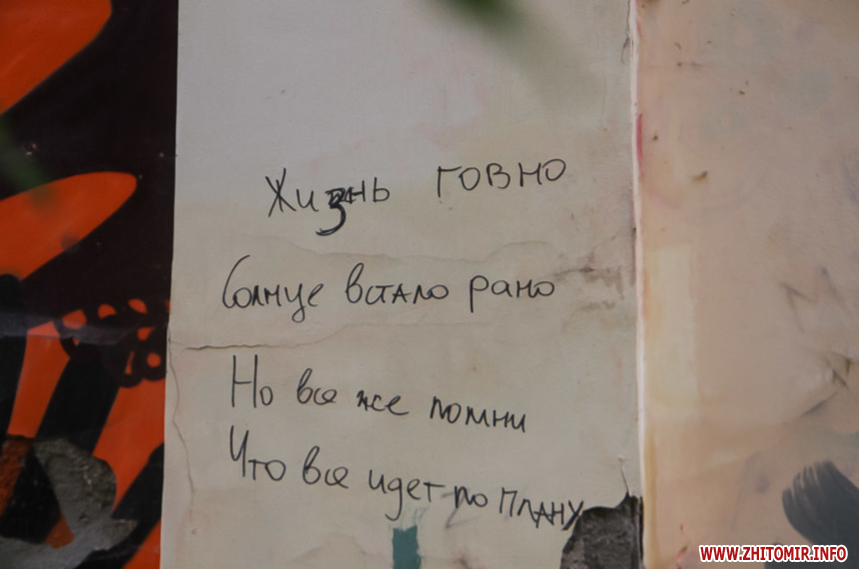 Жизнь говно
Солнце встало рано
Но все же помни
Что все идет по плану
WWW.ZHITOMIR.INFO